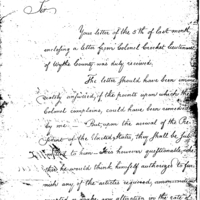 To
Your letter of the 5th of last month
enclosing a letter from Colonel Crocket Lieutenant
of Wythe County was duly received.
The letter should have been
nately satisfied, if the points upon which the
Colonel complains, could have been remedied
by me. But upon the arrival of the Pre-
sident of the United States, they shall be sub-
to how. Is however questionable,
that he would think himself authorized to fur-
nish any of the articles required,
make any alteration in the rate of